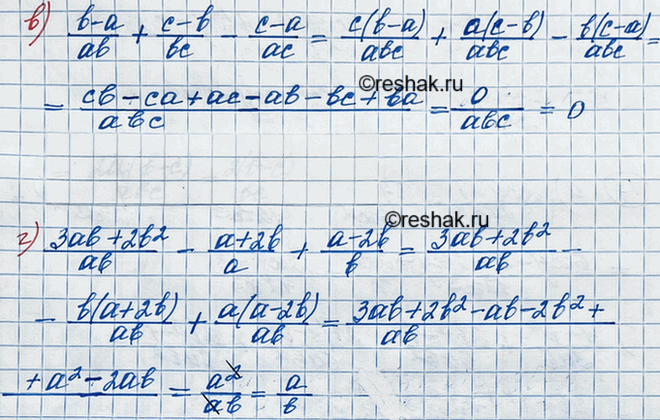 в) (b-a)/ab + (c-b)/bc - (c-a)/ac = c(b-a)/abc + a(c-b)/abc - b(c-a)/abc =
©reshak.ru
= (cb-ca+ac-ab-bc+ba)/abc = 0/abc = 0
©reshak.ru
г) (3ab+2b²)/ab - (a+2b)/a + (a-2b)/b = (3ab+2b²)/ab -
- b(a+2b)/ab + a(a-2b)/ab = (3ab+2b²-ab-2b²+
+a²-2ab)/ab = a²/ab = a/b